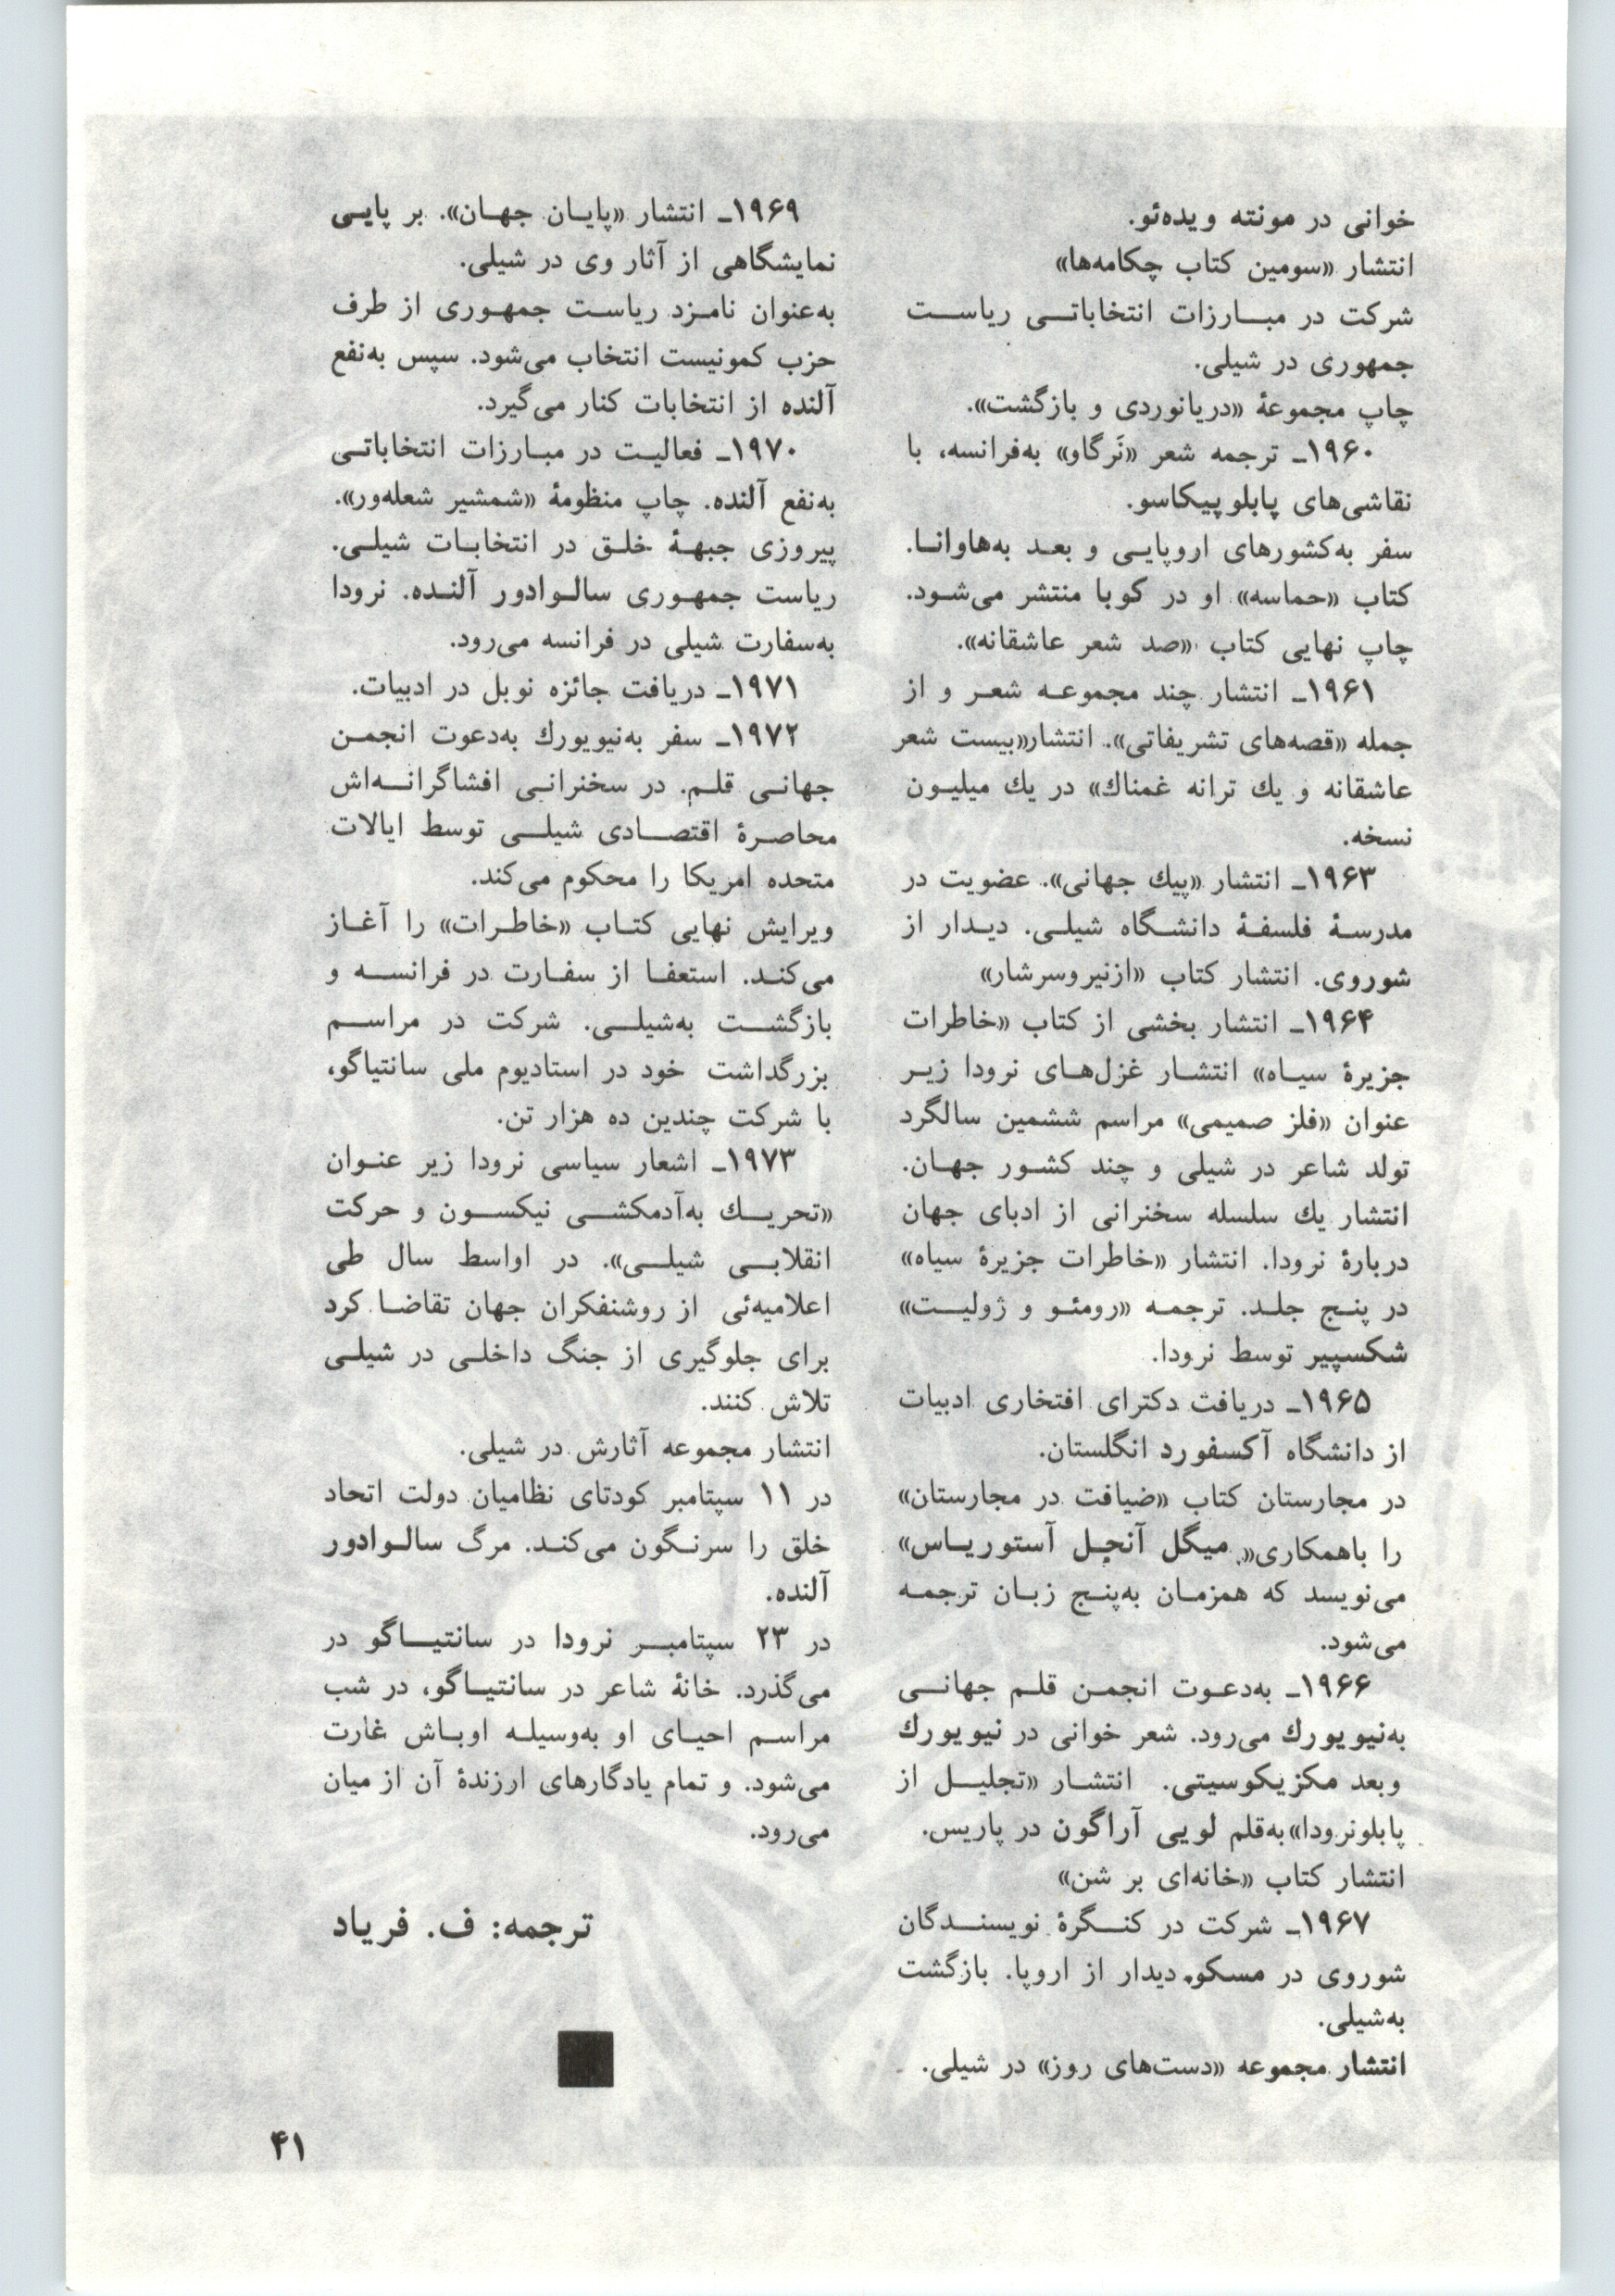 خوانی در مونته ویده‌ئو.
انتشار «سومین کتاب چکامه‌ها»
شرکت در مبــارزات انتخاباتــی ریاســت
جمهوری در شیلی.
چاپ مجموعهٔ «دریانوردی و بازگشت».
۱۹۶۰ـ ترجمه شعر «نَرگاو» به‌فرانسه، با
نقاشی‌های پابلو پیکاسو.
سفر به‌کشورهای اروپایـی و بعـد به‌هاوانـا.
کتاب «حماسه» او در کوبا منتشر می‌شـود.
چاپ نهایی کتاب «صد شعر عاشقانه».
۱۹۶۱ـ انتشار چند مجموعـه شعـر و از
جمله «قصه‌های تشریفاتی». انتشار«بیست شعر
عاشقانه و یك ترانه غمناك» در یك میلیـون
نسخه.
۱۹۶۳ـ انتشار «پیك جهانی». عضویت در
مدرسـهٔ فلسفـهٔ دانشـگاه شیلـی. دیـدار از
شوروی. انتشار کتاب «ازنیروسرشار»
۱۹۶۴ـ انتشار بخشی از کتاب «خاطرات
جزیرهٔ سیـاه» انتشـار غزل‌هـای نرودا زیـر
عنوان «فلز صمیمی» مراسم ششمین سالگرد
تولد شاعر در شیلی و چند کشـور جهـان.
انتشار یك سلسله سخنرانی از ادبای جهان
دربارهٔ نرودا. انتشار «خاطرات جزیرهٔ سیاه»
در پنـج جلـد. ترجمـه «رومئـو و ژولیـت»
شکسپیر توسط نرودا.
۱۹۶۵ـ دریافت دکترای افتخاری ادبیات
از دانشگاه آکسفورد انگلستان.
در مجارستان کتاب «ضیافت در مجارستان»
را باهمکاری« میگل آنجـل آستوریـاس»
می‌نویسد که همزمـان به‌پنـج زبـان ترجمـه
می‌شود.
۱۹۶۶ـ به‌دعـوت انجمـن قلـم جهانــی
به‌نیویورك می‌رود. شعر خوانی در نیویورك
وبعد مکزیکوسیتی. انتشـار «تجلیــل از
پابلونرودا»به‌قلم لویی آراگون در پاریس.
انتشار کتاب «خانه‌ای بر شن»
۱۹۶۷ـ شرکت در کنــگرهٔ نویسنــدگان
شوروی در مسکو. دیدار از اروپا. بازگشت
به‌شیلی.
انتشار مجموعه «دست‌های روز» در شیلی.
۱۹۶۹ـ انتشار «پایـان جهـان». بر پایـی
نمایشگاهی از آثار وی در شیلی.
به‌عنوان نامـزد ریاسـت جمهـوری از طرف
حزب کمونیست انتخاب می‌شود. سپس به‌نفع
آلنده از انتخابات کنار می‌گیرد.
۱۹۷۰ـ فعالیـت در مبـارزات انتخاباتـی
به‌نفع آلنده. چاپ منظومهٔ «شمشیر شعله‌ور».
پیروزی جبهـهٔ خلـق در انتخابـات شیلـی.
ریاست جمهـوری سالـوادور آلنـده. نرودا
به‌سفارت شیلی در فرانسه می‌رود.
۱۹۷۱ـ دریافت جائزه نوبل در ادبیات.
۱۹۷۲ـ سفر به‌نیویورك به‌دعوت انجمـن
جهانـی قلـم. در سخنرانـی افشاگرانــه‌اش
محاصـرهٔ اقتصــادی شیلــی توسط ایالات
متحده امریکا را محکوم می‌کند.
ویرایش نهایی کتـاب «خاطـرات» را آغـاز
می‌کنـد. استعفـا از سفـارت در فرانســه و
بازگشــت به‌شیلــی. شرکت در مراســم
بزرگداشت خود در استادیوم ملی سانتیاگو،
با شرکت چندین ده هزار تن.
۱۹۷۳ـ اشعار سیاسی نرودا زیر عنـوان
«تحریــك به‌آدمکشــی نیکســون و حرکت
انقلابــی شیلــی». در اواسط سال طی
اعلامیه‌ئی از روشنفکران جهان تقاضـا کرد
برای جلوگیری از جنگ داخلـی در شیلـی
تلاش کنند.
انتشار مجموعه آثارش در شیلی.
در ۱۱ سپتامبر کودتای نظامیان دولت اتحاد
خلق را سرنـگون می‌کنـد. مرگ سالـوادور
آلنده.
در ۲۳ سپتامبــر نرودا در سانتیــاگو در
می‌گذرد. خانهٔ شاعر در سانتیـاگو، در شب
مراسـم احیـای او به‌وسیلـه اوبـاش غارت
می‌شود. و تمام یادگارهای ارزندهٔ آن از میان
می‌رود.
ترجمه: ف. فریاد
۴۱